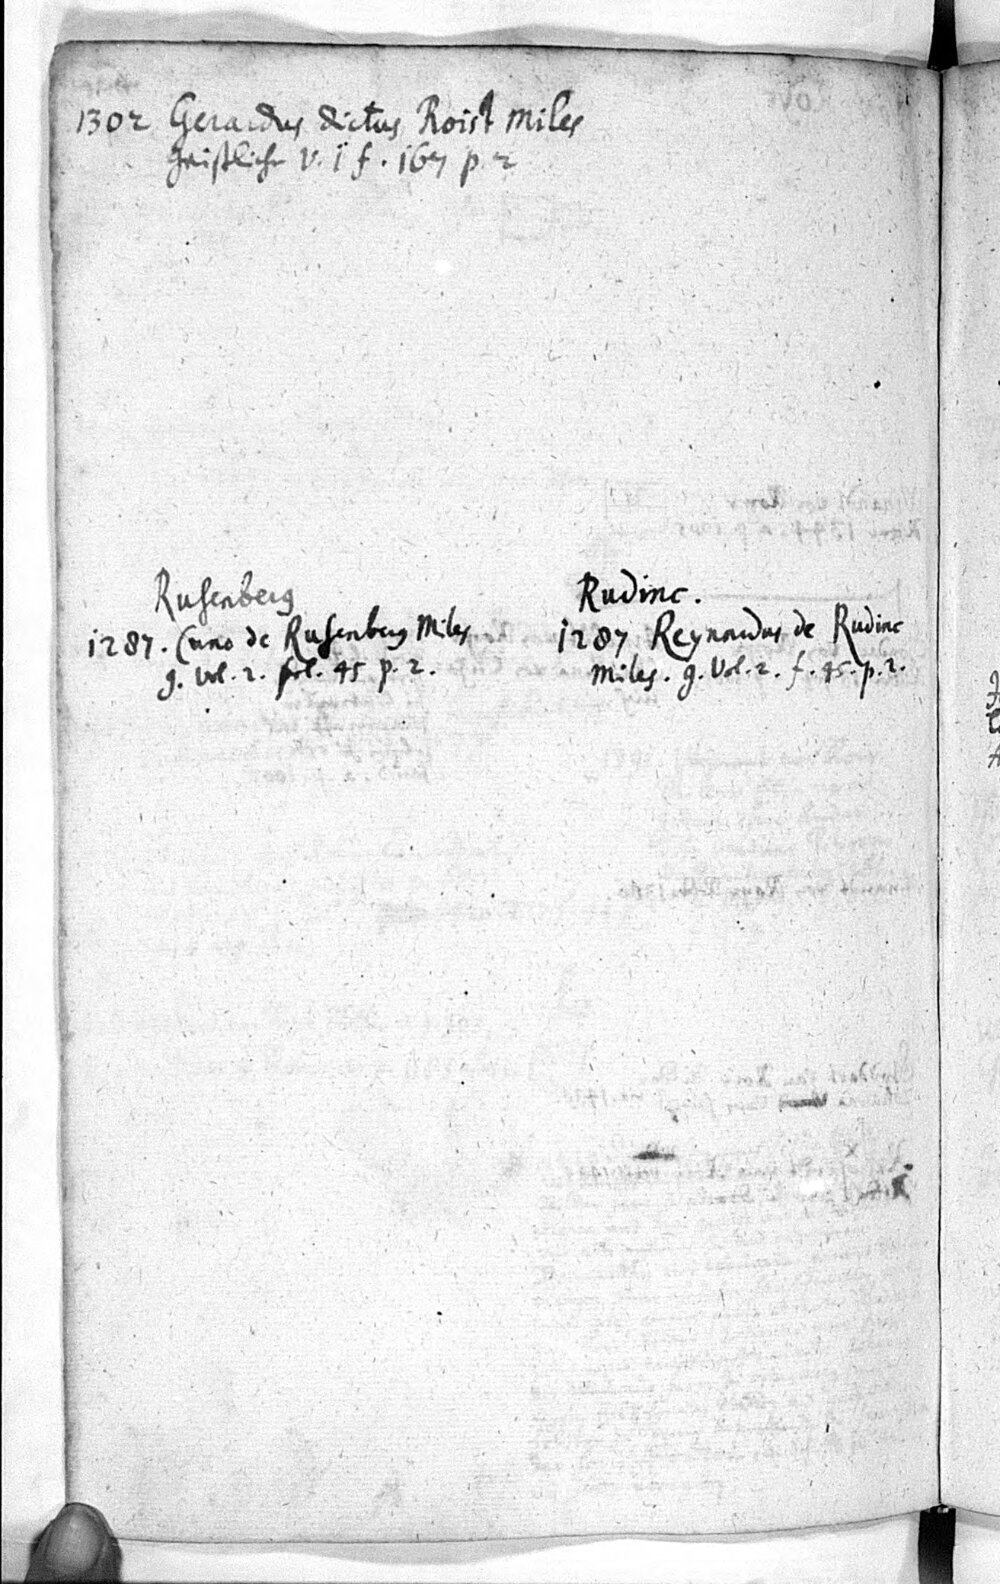 1302 Gerardus dictus Roist miles
geistliche v. i f. 167 p. 2
Rusenberg
1287. Cuno de Rusenberg Miles
g. vol. 2. fol. 45 p. 2.
Rudinc.
1287 Reynardus de Rudinc
miles. g. Vol. 2. f. 45. p. 2.